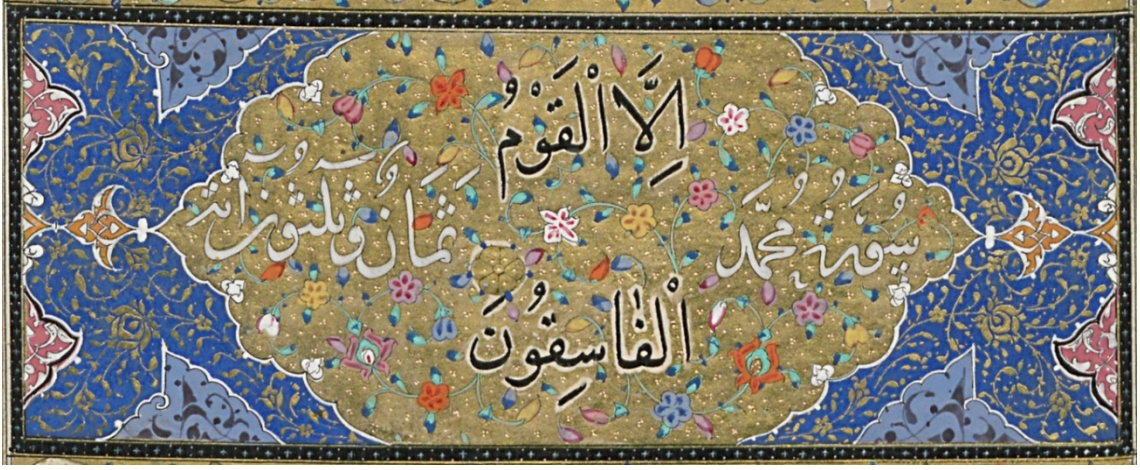 اِلَّا الْقَوْمُ
سُورَةُ مُحَمَّد ثَمَانٌ وَثَلثُونَ آيَة
الْفٰاسِقُونَ